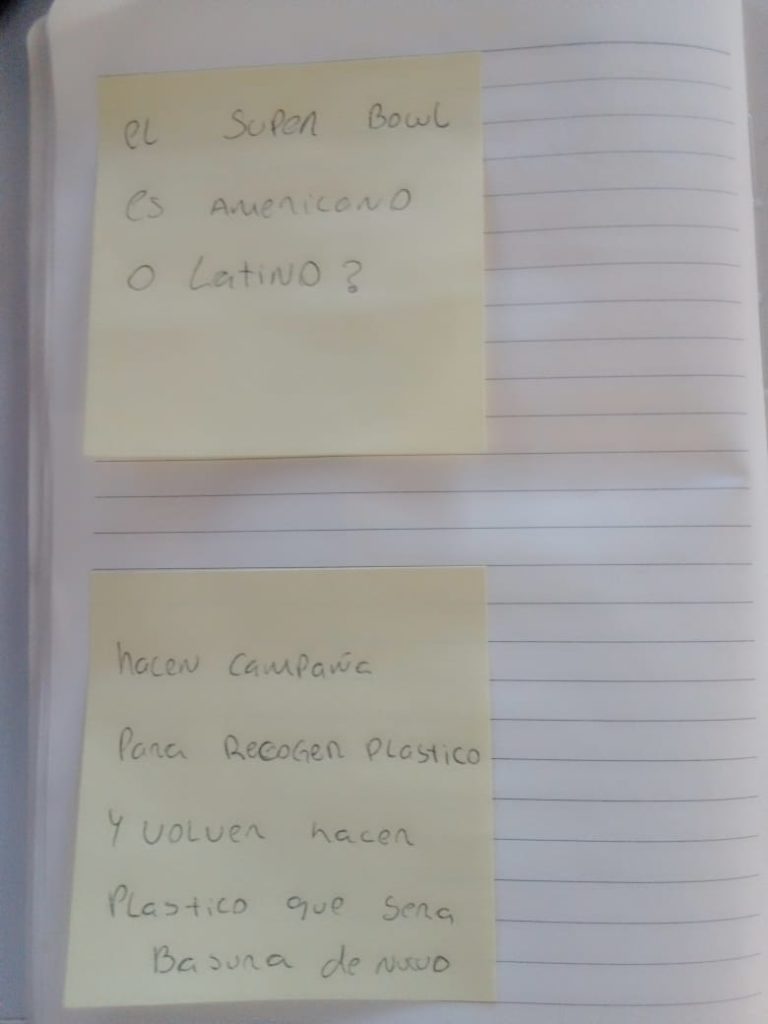 el Super Bowl
es Americano
o Latino?
hacen campaña
Para Recoger Plastico
Y volver hacer
Plastico que sera
Basura de nuvo